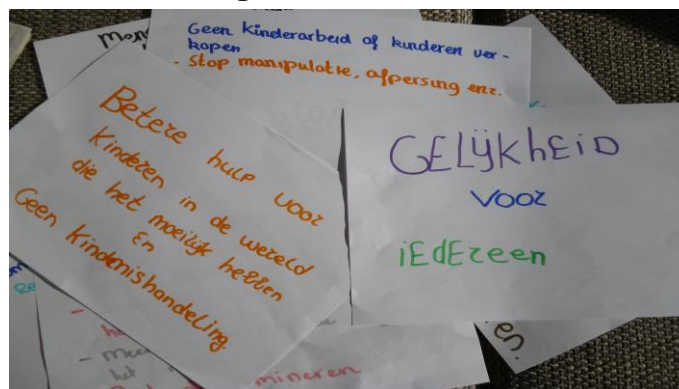 Geen Kinderarbeid of kinderen ver-
kopen
- Stop manipulatie, afpersing enz.
Betere hulp voor
Kinderen in de wereld
die het moeilijk hebben
En
Geen Kindermishandeling.
GELijkhEiD
VOOR
iEdEreen
mineren
en.